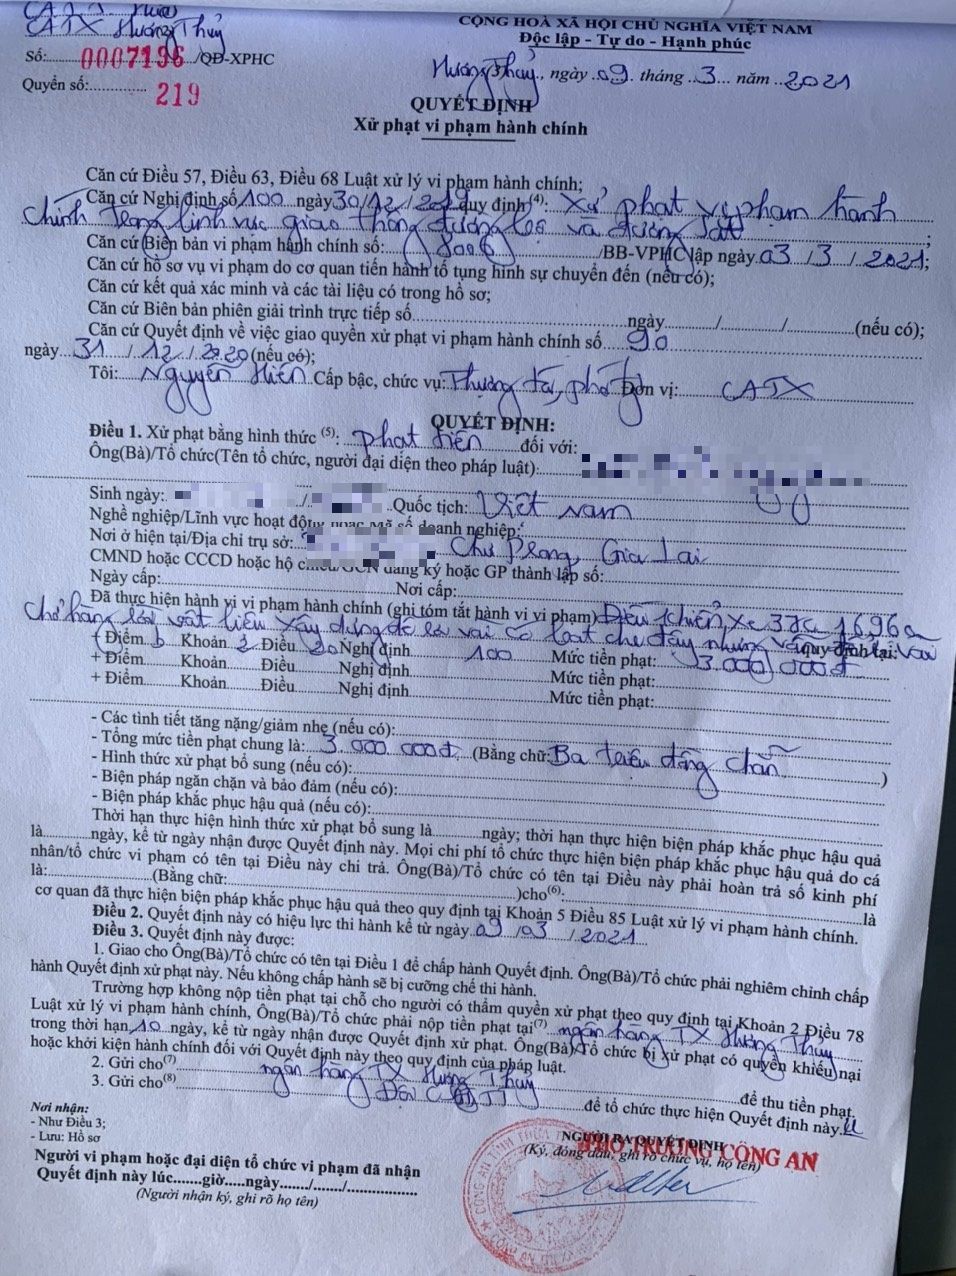 CATX Hương Thủy
Số: 0007196 /QĐ-XPHC
Quyển số: 219
CỘNG HOÀ XÃ HỘI CHỦ NGHĨA VIỆT NAM
Độc lập - Tự do - Hạnh phúc
Hương Thủy, ngày 09 tháng 3 năm 2021
QUYẾT ĐỊNH
Xử phạt vi phạm hành chính
Căn cứ Điều 57, Điều 63, Điều 68 Luật xử lý vi phạm hành chính;
Căn cứ Nghị định số 100 ngày 30/12/2019 quy định (4): xử phạt vi phạm hành
chính trong lĩnh vực giao thông đường bộ và đường sắt ;
Căn cứ Biên bản vi phạm hành chính số: /BB-VPHC lập ngày 03/3/2021;
Căn cứ hồ sơ vụ vi phạm do cơ quan tiến hành tố tụng hình sự chuyển đến (nếu có);
Căn cứ kết quả xác minh và các tài liệu có trong hồ sơ;
Căn cứ Biên bản phiên giải trình trực tiếp số........ngày......../......../........(nếu có);
Căn cứ Quyết định về việc giao quyền xử phạt vi phạm hành chính số 90
ngày 31/12/2020 (nếu có);
Tôi: Nguyễn Hiền Cấp bậc, chức vụ: Thượng tá, phó Đơn vị: CATX
QUYẾT ĐỊNH:
Điều 1. Xử phạt bằng hình thức (5): phạt tiền đối với:
Ông(Bà)/Tổ chức(Tên tổ chức, người đại diện theo pháp luật):
Sinh ngày: / Quốc tịch: Việt Nam
Nghề nghiệp/Lĩnh vực hoạt động doanh nghiệp:
Nơi ở hiện tại/Địa chỉ trụ sở: Chư Prong, Gia Lai
CMND hoặc CCCD hoặc hộ chiếu/GCN đăng ký hoặc GP thành lập số:
Ngày cấp: Nơi cấp:
Đã thực hiện hành vi vi phạm hành chính (ghi tóm tắt hành vi vi phạm): Điều khiển xe
chở hàng rời vật liệu xây dựng để rơi vãi có bạt che đậy nhưng vẫn để rơi vãi quy định tại:
+ Điểm b Khoản 2 Điều 20 Nghị định 100 Mức tiền phạt: 3.000.000đ
+ Điểm Khoản Điều Nghị định Mức tiền phạt:
+ Điểm Khoản Điều Nghị định Mức tiền phạt:
- Các tình tiết tăng nặng/giảm nhẹ (nếu có):
- Tổng mức tiền phạt chung là: 3.000.000đ (Bằng chữ: Ba triệu đồng chẵn )
- Hình thức xử phạt bổ sung (nếu có):
- Biện pháp ngăn chặn và bảo đảm (nếu có):
- Biện pháp khắc phục hậu quả (nếu có):
Thời hạn thực hiện hình thức xử phạt bổ sung là........ngày; thời hạn thực hiện biện pháp khắc phục hậu quả
là........ngày, kể từ ngày nhận được Quyết định này. Mọi chi phí tổ chức thực hiện biện pháp khắc phục hậu quả do cá
nhân/tổ chức vi phạm có tên tại Điều này chi trả. Ông(Bà)/Tổ chức có tên tại Điều này phải hoàn trả số kinh phí
là:........(Bằng chữ:........)cho(6).........là
cơ quan đã thực hiện biện pháp khắc phục hậu quả theo quy định tại Khoản 5 Điều 85 Luật xử lý vi phạm hành chính.
Điều 2. Quyết định này có hiệu lực thi hành kể từ ngày 09/03/2021
Điều 3. Quyết định này được:
1. Giao cho Ông(Bà)/Tổ chức có tên tại Điều 1 để chấp hành Quyết định. Ông(Bà)/Tổ chức phải nghiêm chỉnh chấp
hành Quyết định xử phạt này. Nếu không chấp hành sẽ bị cưỡng chế thi hành.
Trường hợp không nộp tiền phạt tại chỗ cho người có thẩm quyền xử phạt theo quy định tại Khoản 2 Điều 78
Luật xử lý vi phạm hành chính, Ông(Bà)/Tổ chức phải nộp tiền phạt tại(7) ngân hàng TX Hương Thủy
trong thời hạn 10 ngày, kể từ ngày nhận được Quyết định xử phạt. Ông(Bà)/Tổ chức bị xử phạt có quyền khiếu nại
hoặc khởi kiện hành chính đối với Quyết định này theo quy định của pháp luật.
2. Gửi cho(7) ngân hàng TX Hương Thủy để thu tiền phạt.
3. Gửi cho(8) Đội để tổ chức thực hiện Quyết định này.
Nơi nhận:
- Như Điều 3;
- Lưu: Hồ sơ
Người vi phạm hoặc đại diện tổ chức vi phạm đã nhận
Quyết định này lúc.......giờ.....ngày......./......./.................
(Người nhận ký, ghi rõ họ tên)
NGƯỜI RA QUYẾT ĐỊNH
(Ký, đóng dấu, ghi rõ chức vụ, họ tên)
PHÓ TRƯỞNG CÔNG AN